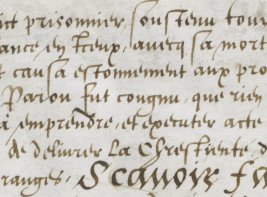 ict prisonnier, soustenu tour
ance en ceux, avecq sa mort
t causa estonnement aux pro
Par ou fut cougnu, que rien
a emprendre, et executer acte
de delivrer la Chrestiente, d
ranges. Scavoir fa